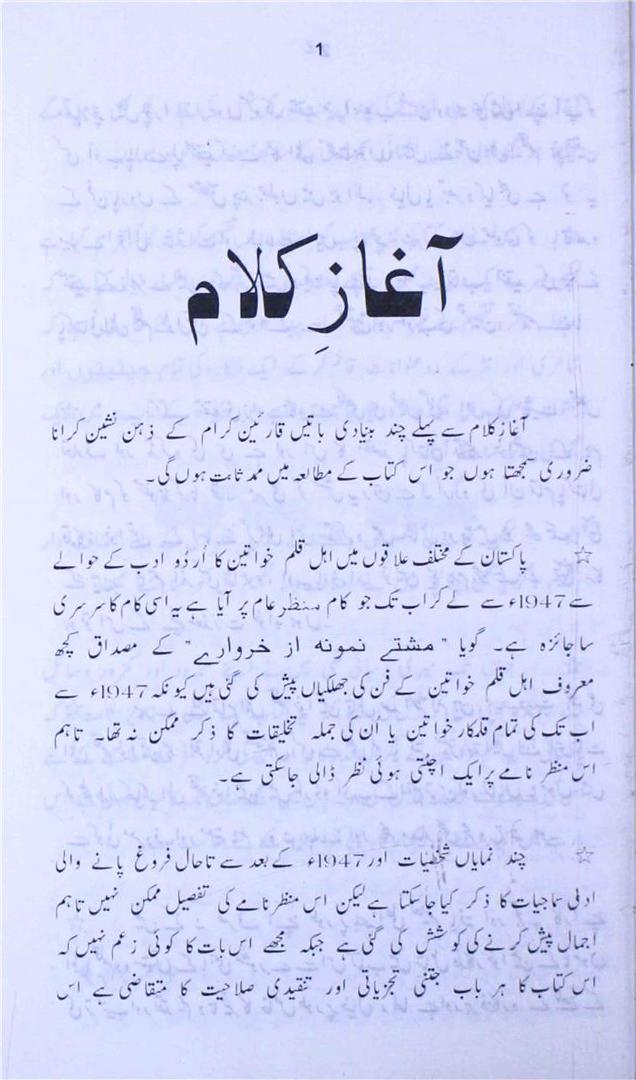 1
آغازِ کلام
آغازِ کلام سے پہلے چند بنیادی باتیں قارئین کرام کے ذہن نشین کرانا
ضروری سمجھتا ہوں جو اس کتاب کے مطالعہ میں ممد ثابت ہوں گی۔
☆ پاکستان کے مختلف علاقوں میں اہل قلم خواتین کا اُردو ادب کے حوالے
سے 1947ء سے لے کر اب تک جو کام منظر عام پر آیا ہے یہ اسی کام کا سرسری
سا جائزہ ہے۔ گویا "مشتے نمونہ از خروارے" کے مصداق کچھ
معروف اہل قلم خواتین کے فن کی جھلکیاں پیش کی گئی ہیں کیونکہ 1947ء سے
اب تک کی تمام قلمکار خواتین یا اُن کی جملہ تخلیقات کا ذکر ممکن نہ تھا۔ تاہم
اس منظر نامے پر ایک اچٹتی ہوئی نظر ڈالی جاسکتی ہے۔
☆ چند نمایاں شخصیات اور 1947ء کے بعد سے تاحال فروغ پانے والی
ادبی سماجیات کا ذکر کیا جاسکتا ہے لیکن اس منظر نامے کی تفصیل ممکن نہیں تاہم
اجمال پیش کرنے کی کوشش کی گئی ہے جبکہ مجھے اس بات کا کوئی زعم نہیں کہ
اس کتاب کا ہر باب جتنی تجزیاتی اور تنقیدی صلاحیت کا متقاضی ہے اس